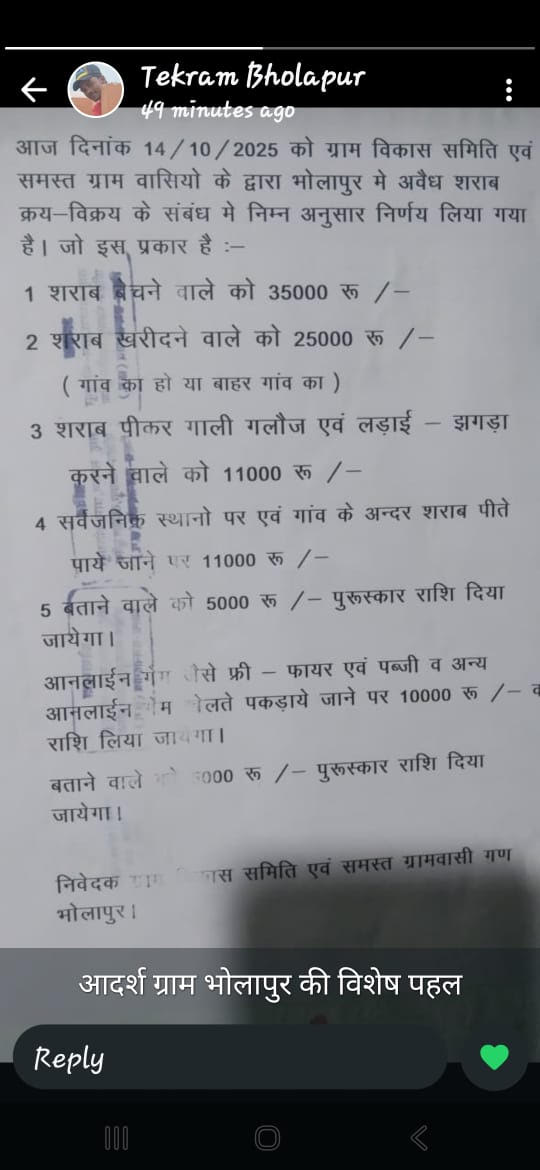 Tekram Bholapur
49 minutes ago
आज दिनांक 14/10/2025 को ग्राम विकास समिति एवं
समस्त ग्राम वासियो के द्वारा भोलापुर मे अवैध शराब
क्रय–विक्रय के संबंध मे निम्न अनुसार निर्णय लिया गया
है। जो इस प्रकार है :–
1 शराब बेचने वाले को 35000 रू /–
2 शराब खरीदने वाले को 25000 रू /–
( गांव का हो या बाहर गांव का )
3 शराब पीकर गाली गलौज एवं लड़ाई – झगड़ा
करने वाले को 11000 रू /–
4 सर्वजनिक स्थानो पर एवं गांव के अन्दर शराब पीते
पाये जाने पर 11000 रू /–
5 बताने वाले को 5000 रू /– पुरूस्कार राशि दिया
जायेगा।
आनलाईन गेम जैसे फ्री – फायर एवं पब्जी व अन्य
आनलाईन गेम खेलते पकड़ाये जाने पर 10000 रू /–
राशि लिया जायेगा।
बताने वाले को 000 रू /– पुरूस्कार राशि दिया
जायेगा।
निवेदक ग्राम विकास समिति एवं समस्त ग्रामवासी गण
भोलापुर।
आदर्श ग्राम भोलापुर की विशेष पहल
Reply